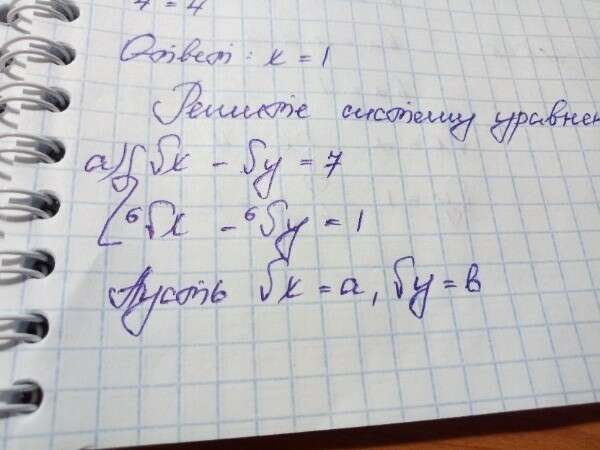 4 = 4
Ответ: x = 1
Решите систему уравнен
а) { √x - √y = 7
⁶√x - ⁶√y = 1
Пусть √x = a, √y = b